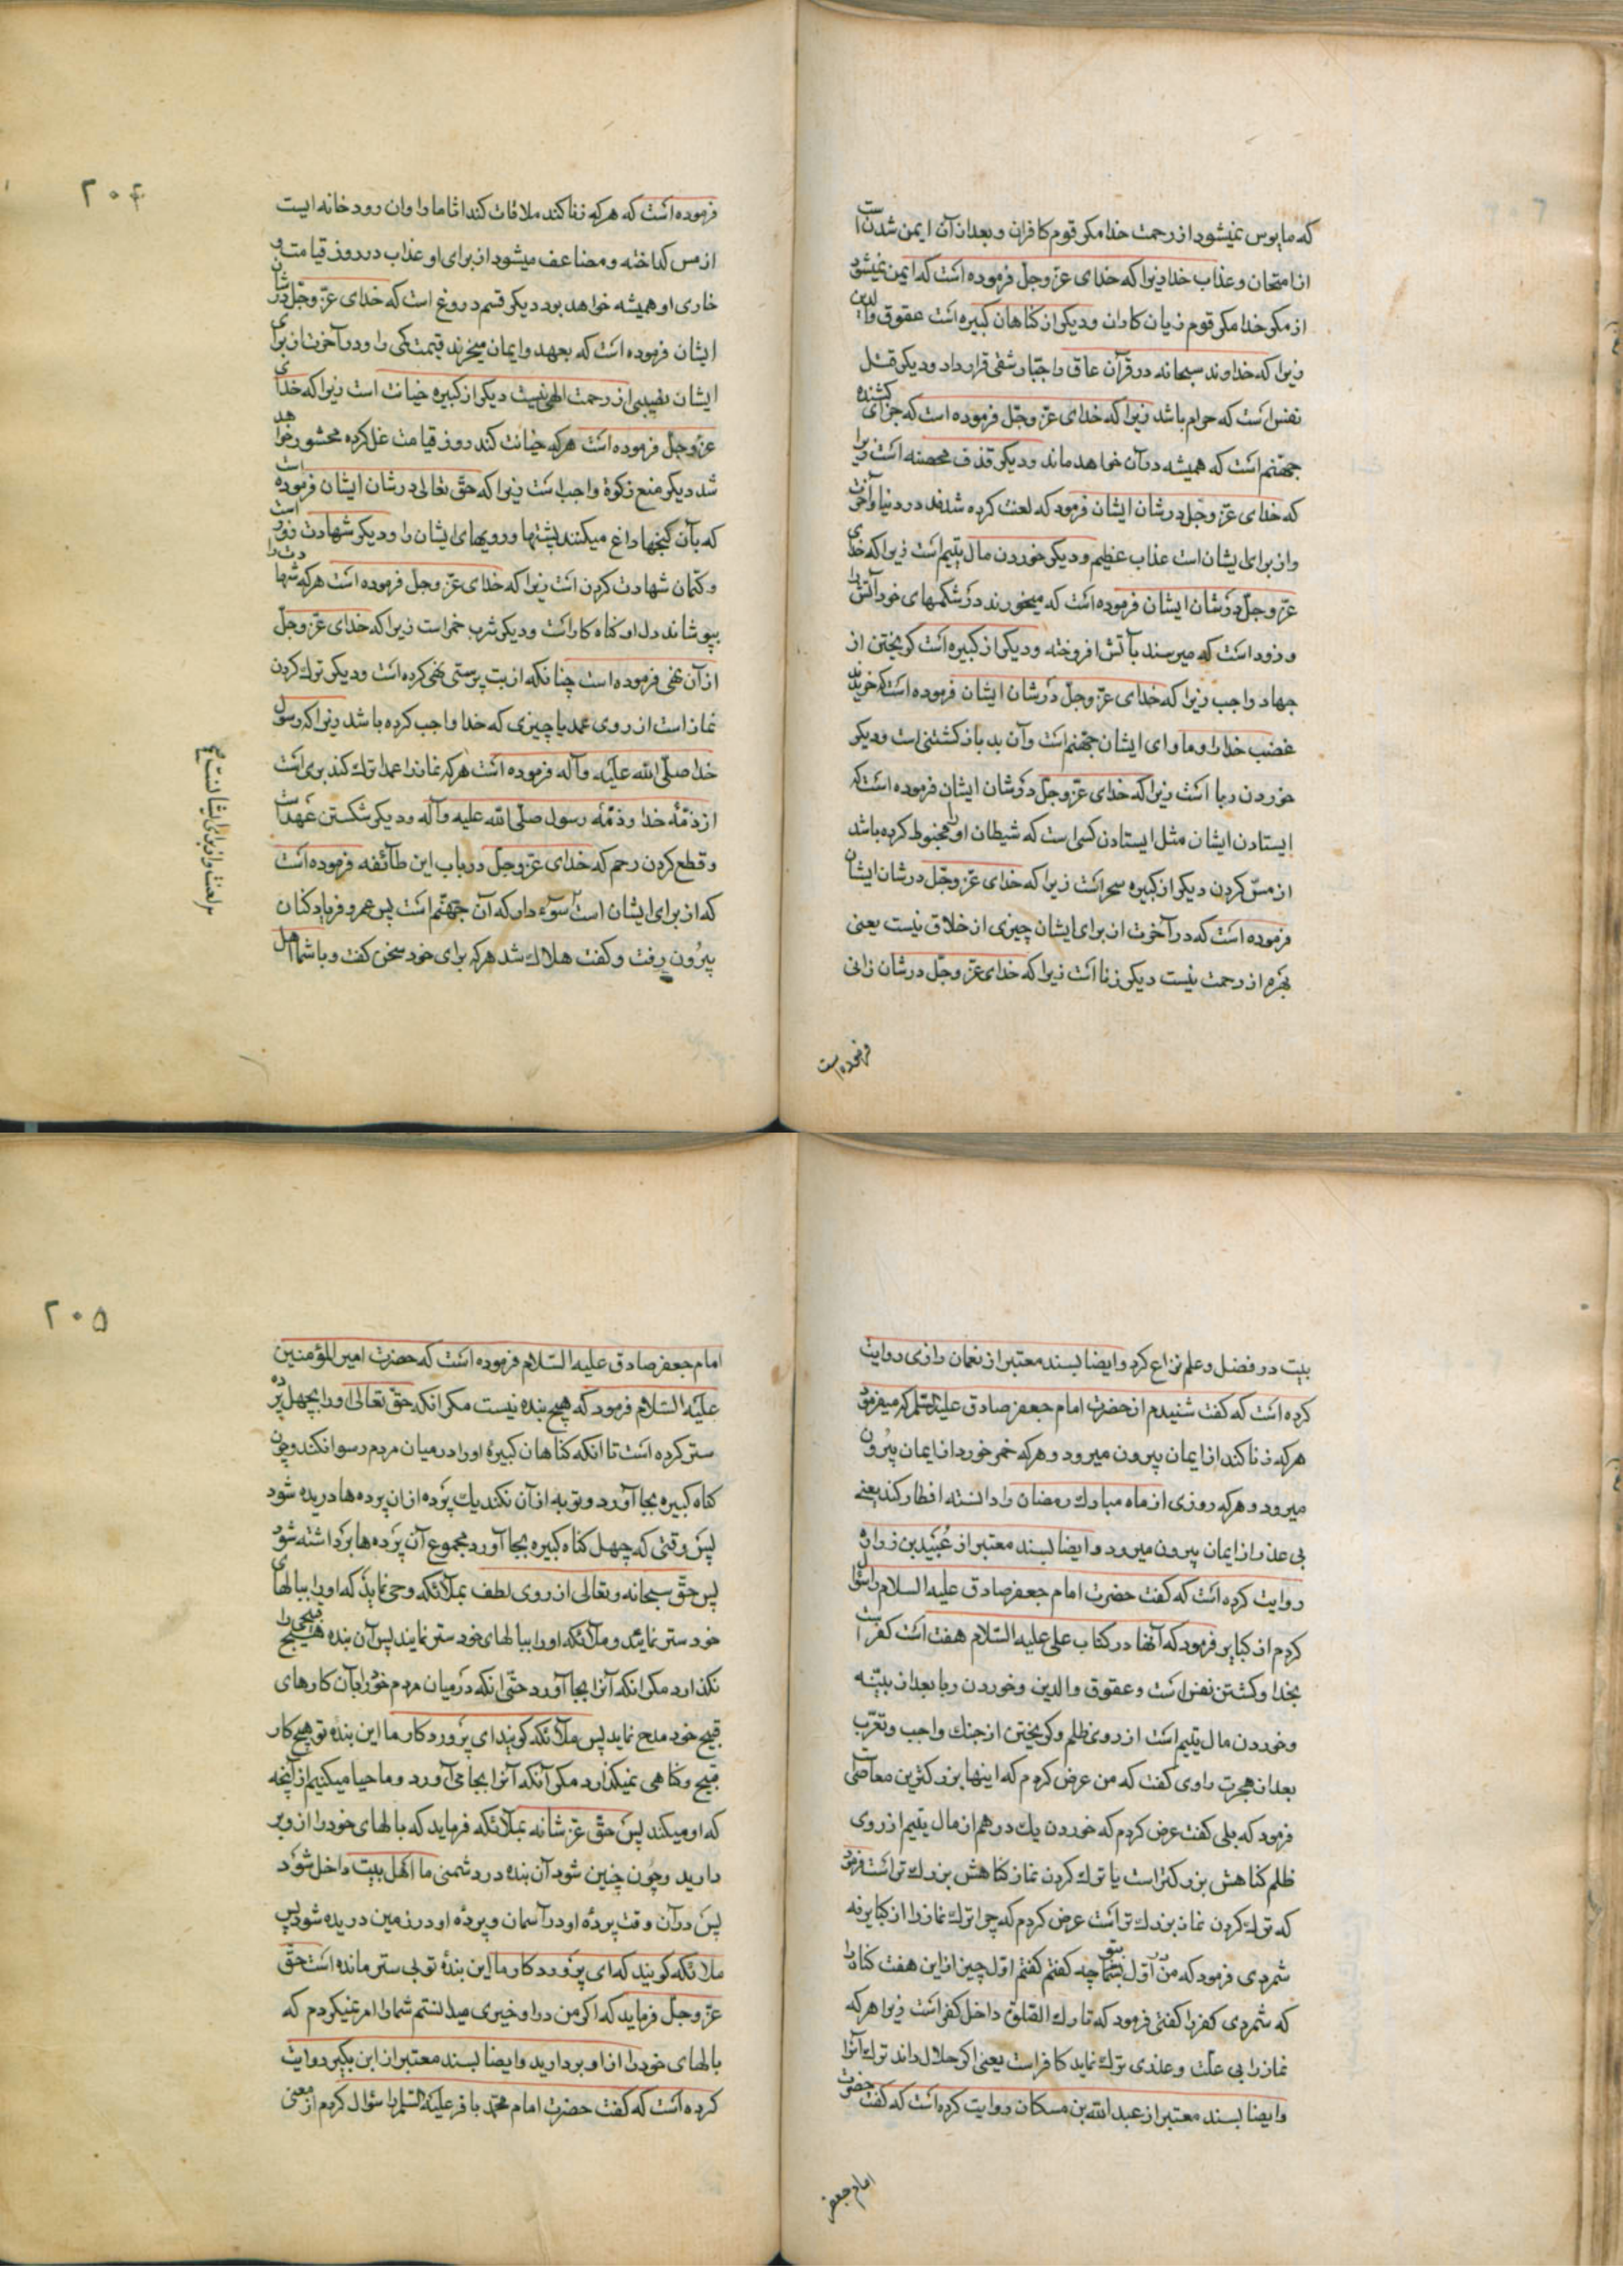 که مایوس نمیشود از رحمت خدا مکر قوم کافران و بعد از آن ایمن شدن است
از امتحان و عذاب خدا زیرا که خدای عزّ وجلّ فرموده است که ایمن نمیشود
از مکر خدا مکر قوم زیان کاران و دیکر از کناهان کبیره است عقوق والدین
زیرا که خداوند سبحانه در قرآن عاق را جبّار شقی قرار داد و دیکر قتل
نفس است که حرام باشد زیرا که خدای عزّ وجلّ فرموده است که جزای کشنده
جهنّم است که همیشه در آن خواهد ماند و دیکر قذف محصنه است زیرا
که خدای عزّ وجلّ در شان ایشان فرمود که لعنت کرده شدند در دنیا و آخرت
و از برای ایشان است عذاب عظیم و دیکر خوردن مال یتیم است زیرا که خدای
عزّ وجلّ در شان ایشان فرموده است که میخورند در شکمهای خود آتش را
و زود است که میرسند بآتش افروخته و دیکر از کبیره است کریختن از
جهاد واجب زیرا که خدای عزّ وجلّ در شان ایشان فرموده است که خریدند
غضب خدا را و ماوای ایشان جهنّم است و آن بد بازکشتنی است و دیکر
خوردن ربا است زیرا که خدای عزّ وجلّ در شان ایشان فرموده است که
ایستادن ایشان مثل ایستادن کسی است که شیطان او را مخبوط کرده باشد
از مسّ کردن دیکر از کبیره سحر است زیرا که خدای عزّ وجلّ در شان ایشان
فرموده است که در آخرت از برای ایشان چیزی از خلاق نیست یعنی
بهره از رحمت نیست دیکر زنا است زیرا که خدای عزّ وجلّ در شان زانی
فرموده است
۲۰۴
فرموده است که هر که زنا کند ملاقات کند اثاما را و ان رودخانه ایست
از مس کداخته و مضاعف میشود از برای او عذاب در روز قیامت و
خاری او همیشه خواهد بود دیکر قسم دروغ است که خدای عزّ وجلّ در شان
ایشان فرموده است که بعهد و ایمان میخرند قیمت کمی را و در آخرت از برای
ایشان نصیبی از رحمت الهی نیست دیکر از کبیره خیانت است زیرا که خدای
عزّ وجلّ فرموده است هر که خیانت کند روز قیامت غل کرده محشور خواهد
شد دیکر منع زکوة واجب است زیرا که حقّ تعالی در شان ایشان فرموده است
که بآن کنجها داغ میکنند پشتها و رویهای ایشان را و دیکر شهادت زور است
و کتمان شهادت کردن است زیرا که خدای عزّ وجلّ فرموده است هر که شهادت را
بپوشاند دل او کناه کار است و دیکر شرب خمر است زیرا که خدای عزّ وجلّ
از آن نهی فرموده است چنانکه از بت پرستی نهی کرده است و دیکر ترك کردن
نماز است از روی عمد یا چیزی که خدا واجب کرده باشد زیرا که رسول
خدا صلّی الله علیه و آله فرموده است هر که نماز را عمدا ترك کند بری است
از ذمّهٔ خدا و ذمّهٔ رسول صلّی الله علیه و آله و دیکر شکستن عهد است
و قطع کردن رحم که خدای عزّ وجلّ در باب این طآئفه فرموده است
که از برای ایشان است سوء دار که آن جهنّم است پس عمرو فریاد کنان
بیرون رفت و کفت هلاك شد هر که برای خود سخن کفت و با شما اهل
بیت در فضل و علم نزاع کرد و ایضا بسند معتبر از نعمان رازی روایت
کرده است که کفت شنیدم از حضرت امام جعفر صادق علیه السّلام که میفرمود
هر که زنا کند از ایمان بیرون میرود و هر که خمر خورد از ایمان بیرون
میرود و هر که روزی از ماه مبارك رمضان را دانسته افطار کند یعنی
بی عذر از ایمان بیرون میرود و ایضا بسند معتبر از عُبَید بن زراره
روایت کرده است که کفت حضرت امام جعفر صادق علیه السلام را سؤال
کردم از کبایر فرمود که آنها در کتاب علی علیه السّلام هفت است کفر است
بخدا و کشتن نفس است و عقوق والدین و خوردن ربا بعد از بیّنه
و خوردن مال یتیم است از روی ظلم و کریختن از جنك واجب و تعرّب
بعد از هجرت راوی کفت که من عرض کردم که اینها بزرکترین معاصی است
فرمود که بلی کفت عرض کردم که خوردن یك درهم از مال یتیم از روی
ظلم کناهش بزرکتر است یا ترك کردن نماز کناهش بزرك تر است فرمود
که ترك کردن نماز بزرك تر است عرض کردم که چرا ترك نماز را از کبایر نه
شمردی فرمود که من اوّل بتو چه کفتم کفتم اوّل چیز از این هفت کناه را
که شمردی کفر را کفتی فرمود که تارك الصّلوة داخل کفر است زیرا هر که
نماز را بی علّت و عذری ترك نماید کافر است یعنی اکر حلال داند ترك آنرا
و ایضا بسند معتبر از عبد الله بن مسکان روایت کرده است که کفت حضرت
امام جعفر
۲۰۵
امام جعفر صادق علیه السّلام فرموده است که حضرت امیر المؤمنین
علیه السّلام فرمود که هیچ بنده نیست مکر انکه حقّ تعالی او را بچهل پرده
ستر کرده است تا انکه کناهان کبیرهٔ او را در میان مردم رسوا نکند و چون
کناه کبیره بجا آورد و توبه از آن نکند یك پرده از ان پرده ها دریده شود
پس وقتی که چهل کناه کبیره بجا آورد مجموع آن پرده ها برداشته شود
پس حقّ سبحانه و تعالی از روی لطف بملآئکه وحی نماید که او را ببالهای
خود ستر نمایند و ملآئکه او را ببالهای خود ستر نمایند پس آن بنده هیچ قبیحی را
نکذارد مکر انکه آنرا بجا آورد حتّی انکه در میان مردم خود را بآن کارهای
قبیح خود مدح نماید پس ملآئکه کویند ای پروردکار ما این بندهٔ تو هیچ کار
قبیح و کناهی نمیکذارد مکر آنکه آنرا بجا می آورد و ما حیا میکنیم از آنچه
که او میکند پس حقّ عزّ شانه بملآئکه فرماید که بالهای خود را از وبر
دارید و چون چنین شود آن بنده در دشمنی ما اهل بیت داخل شود
پس در آن وقت پردهٔ او در آسمان و پردهٔ او در زمین دریده شود پس
ملائکه کویند که ای پروردکار ما این بندهٔ تو بی ستر مانده است حقّ
عزّ وجلّ فرماید که اکر من در او خیری میدانستم شما را امر نمیکردم که
بالهای خود را از او بردارید و ایضا بسند معتبر از ابن بکیر روایت
کرده است که کفت حضرت امام محمّد باقر علیه السّلام را سؤال کردم از معنی